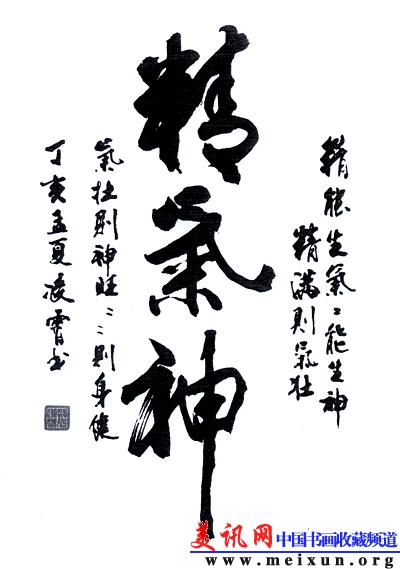 精氣神
精能生氣〻能生神
精满則氣壮
氣壮則神旺〻〻則身健
丁亥孟夏凌霄书
美讯网中国书画收藏频道
www.meixun.org